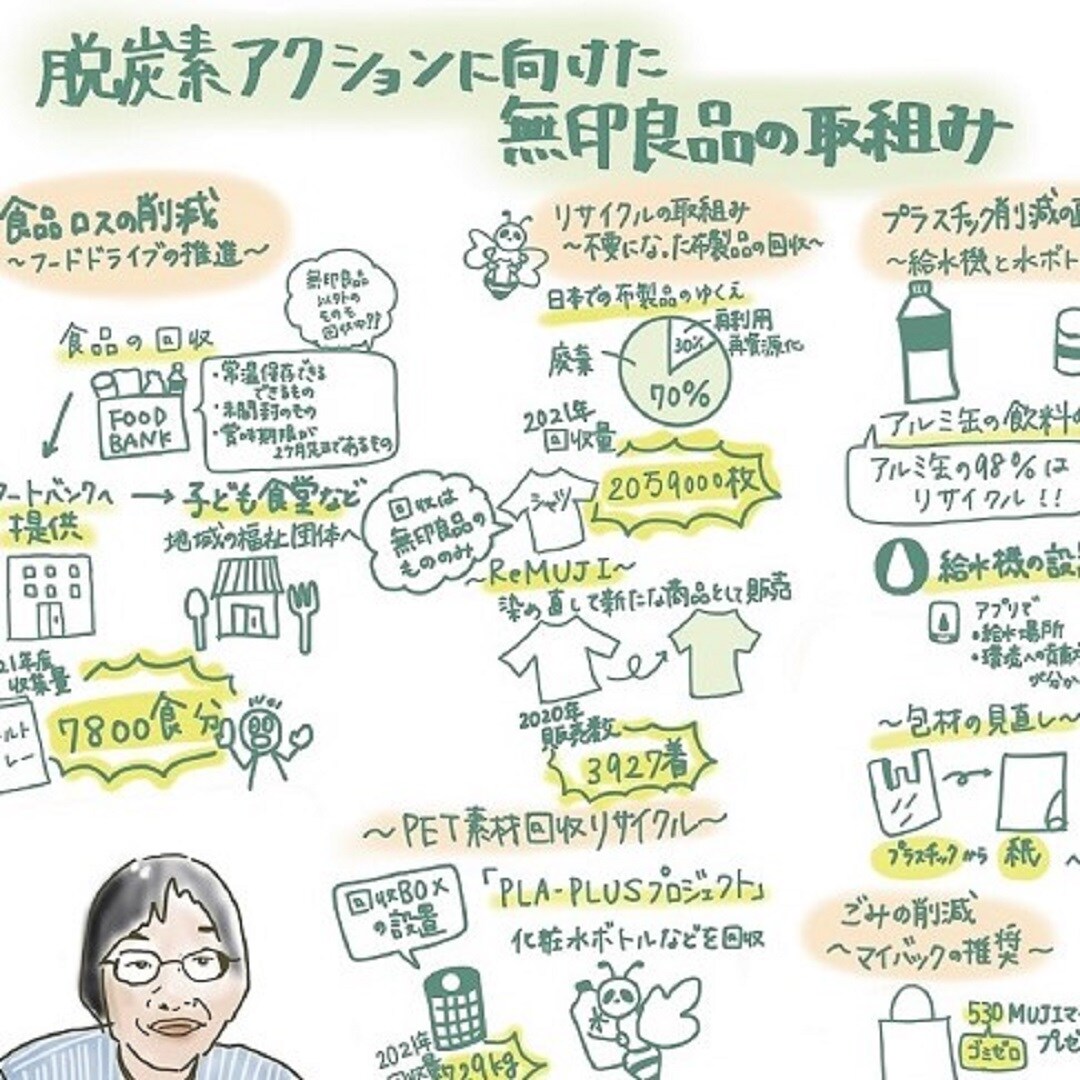 脱炭素アクションに向けた
無印良品の取組み
食品ロスの削減
~フードドライブの推進~
無印良品
以外の
ものも
回収中!!
食品の回収
FOOD
BANK
・常温保存できる
できるもの
・未開封のもの
・賞味期限が
2ヶ月先まであるもの
フートバンクへ
提供
子ども食堂など
地域の福祉団体へ
21年度
収集量
7800食分
リサイクルの取組み
~不要になった布製品の回収~
日本での布製品のゆくえ
再利用
再資源化
30%
廃棄
70%
2021年
回収量
シャツ
20万9000枚
回収は
無印良品の
もののみ
~ReMUJI~
染め直して新たな商品として販売
2020年
販売数
3927着
~PET素材回収リサイクル~
回収BOX
の設置
「PLA-PLUSプロジェクト」
化粧水ボトルなどを回収
2021年
回収量
729kg
プラスチック削減の
~給水機と水ボト
アルミ缶の飲料
アルミ缶の98%は
リサイクル!!
給水機の設
アプリで
・給水場所
・環境への貢献
が分か
~包材の見直し~
プラスチックから 紙 へ
ごみの削減
~マイバックの推奨~
530 MUJIマ
ゴミゼロ
プレゼ